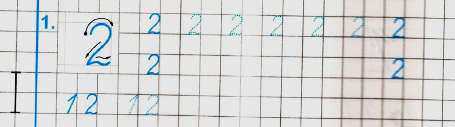 1. 2 2 2 2 2 2 2 2
2 2
12 12